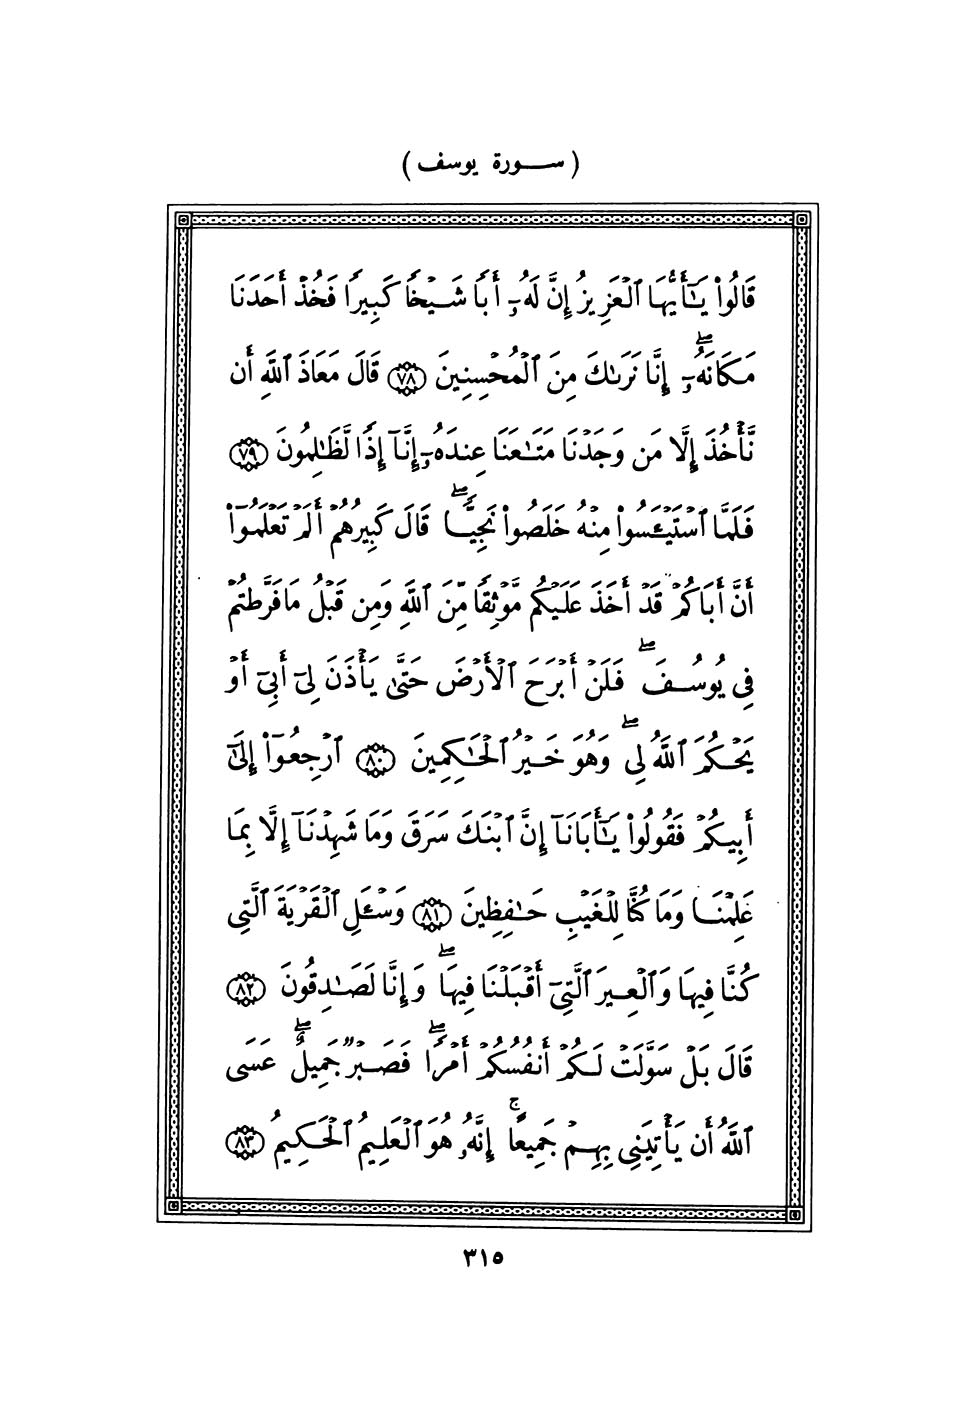 ( سورة يوسف )
قَالُوا۟ يَـٰٓأَيُّهَا ٱلْعَزِيزُ إِنَّ لَهُۥٓ أَبًا شَيْخًا كَبِيرًا فَخُذْ أَحَدَنَا
مَكَانَهُۥٓ ۖ إِنَّا نَرَىٰكَ مِنَ ٱلْمُحْسِنِينَ ﴿٧٨﴾ قَالَ مَعَاذَ ٱللَّهِ أَن
نَّأْخُذَ إِلَّا مَن وَجَدْنَا مَتَـٰعَنَا عِندَهُۥٓ إِنَّآ إِذًا لَّظَـٰلِمُونَ ﴿٧٩﴾
فَلَمَّا ٱسْتَيْـَٔسُوا۟ مِنْهُ خَلَصُوا۟ نَجِيًّا ۖ قَالَ كَبِيرُهُمْ أَلَمْ تَعْلَمُوٓا۟
أَنَّ أَبَاكُمْ قَدْ أَخَذَ عَلَيْكُم مَّوْثِقًا مِّنَ ٱللَّهِ وَمِن قَبْلُ مَا فَرَّطتُمْ
فِى يُوسُفَ ۖ فَلَنْ أَبْرَحَ ٱلْأَرْضَ حَتَّىٰ يَأْذَنَ لِىٓ أَبِىٓ أَوْ
يَحْكُمَ ٱللَّهُ لِى ۖ وَهُوَ خَيْرُ ٱلْحَـٰكِمِينَ ﴿٨٠﴾ ٱرْجِعُوٓا۟ إِلَىٰٓ
أَبِيكُمْ فَقُولُوا۟ يَـٰٓأَبَانَآ إِنَّ ٱبْنَكَ سَرَقَ وَمَا شَهِدْنَآ إِلَّا بِمَا
عَلِمْنَا وَمَا كُنَّا لِلْغَيْبِ حَـٰفِظِينَ ﴿٨١﴾ وَسْـَٔلِ ٱلْقَرْيَةَ ٱلَّتِى
كُنَّا فِيهَا وَٱلْعِيرَ ٱلَّتِىٓ أَقْبَلْنَا فِيهَا ۖ وَإِنَّا لَصَـٰدِقُونَ ﴿٨٢﴾
قَالَ بَلْ سَوَّلَتْ لَكُمْ أَنفُسُكُمْ أَمْرًا ۖ فَصَبْرٌ جَمِيلٌ ۖ عَسَى
ٱللَّهُ أَن يَأْتِيَنِى بِهِمْ جَمِيعًا ۚ إِنَّهُۥ هُوَ ٱلْعَلِيمُ ٱلْحَكِيمُ ﴿٨٣﴾
٣١٥